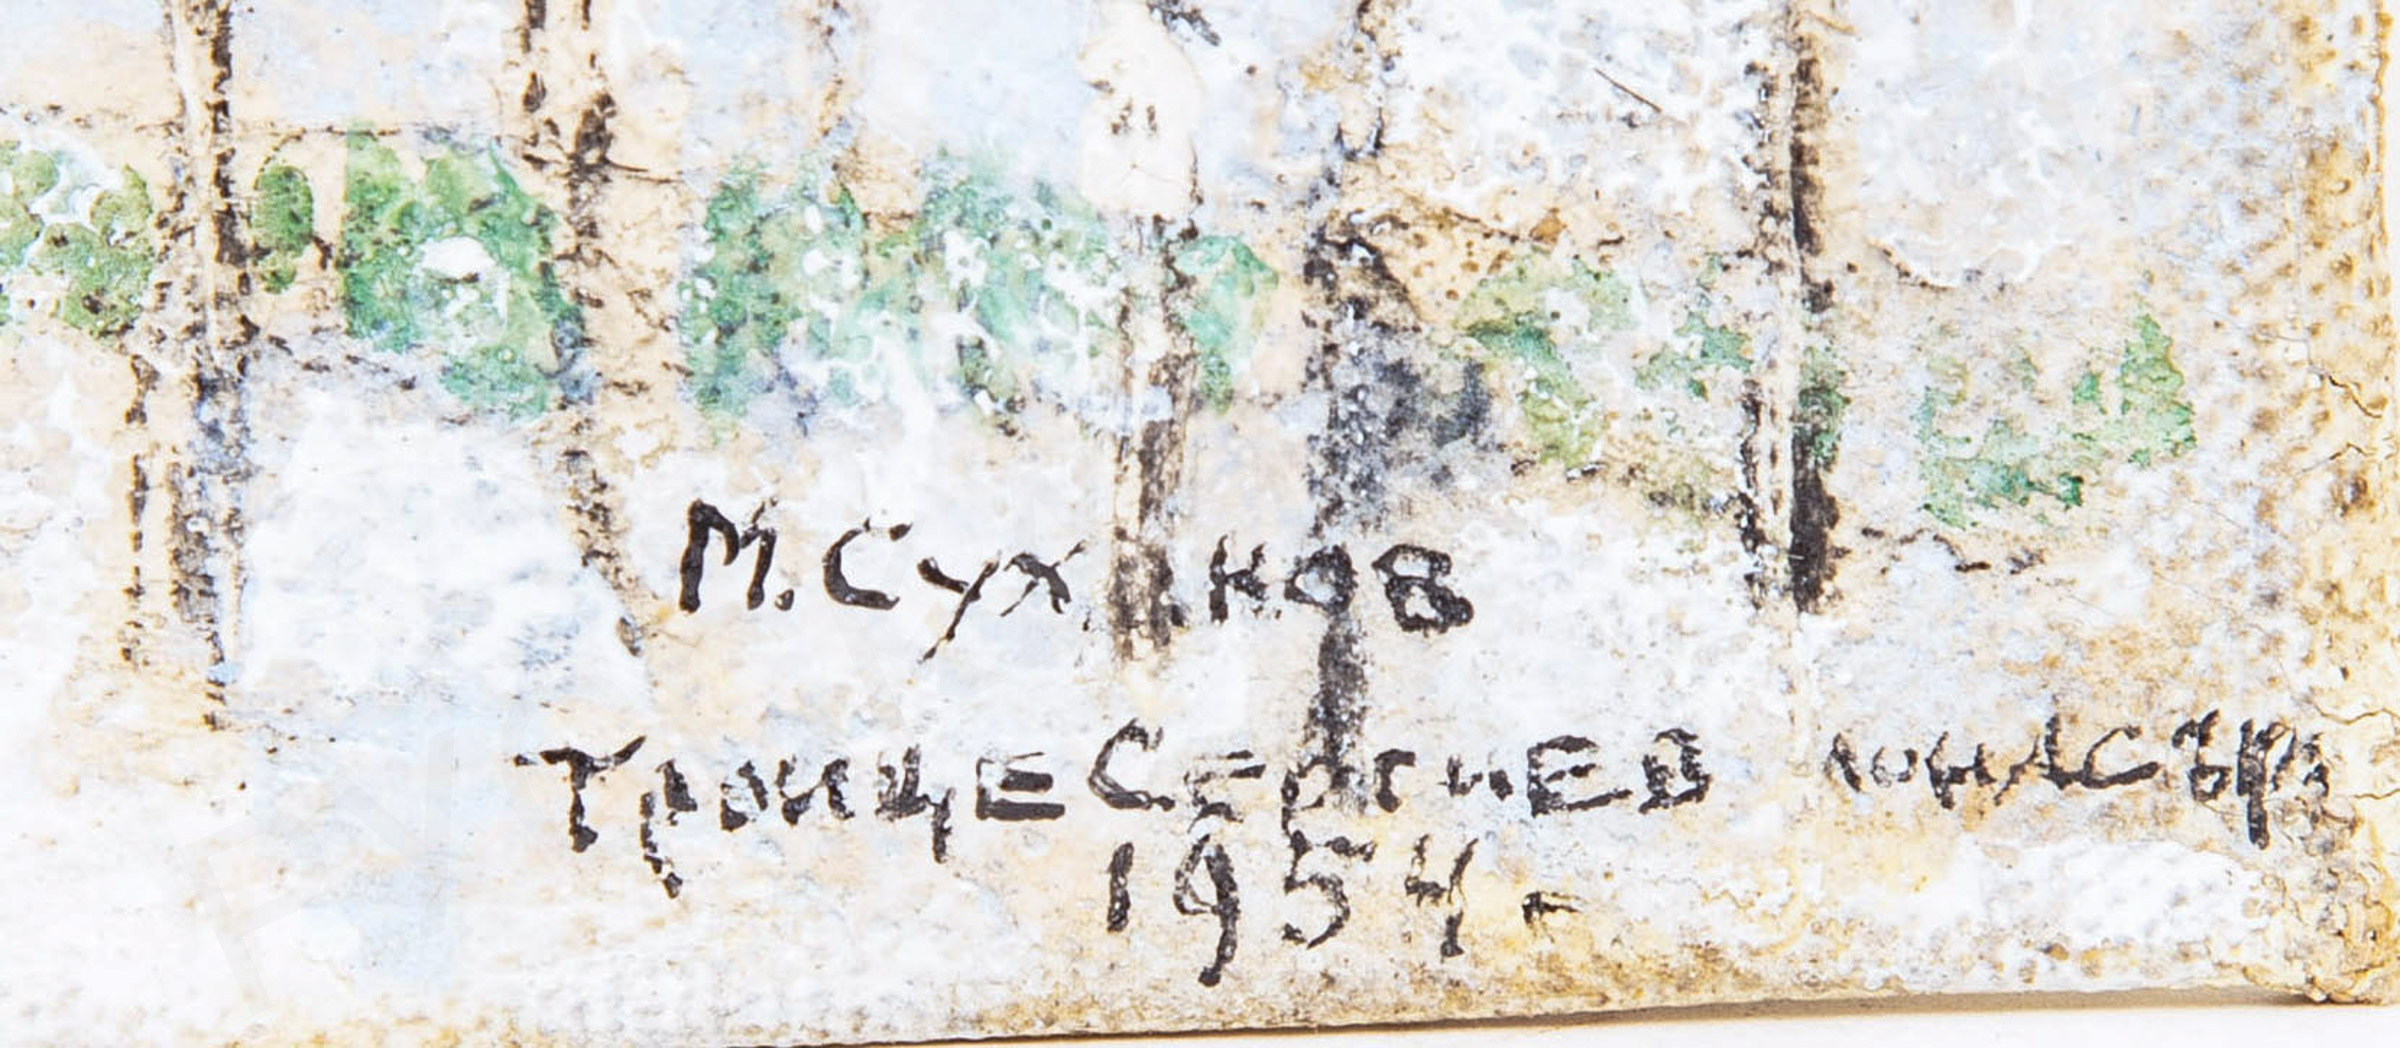 М. Суханов
ТроицеСергиев монастырь
1954-